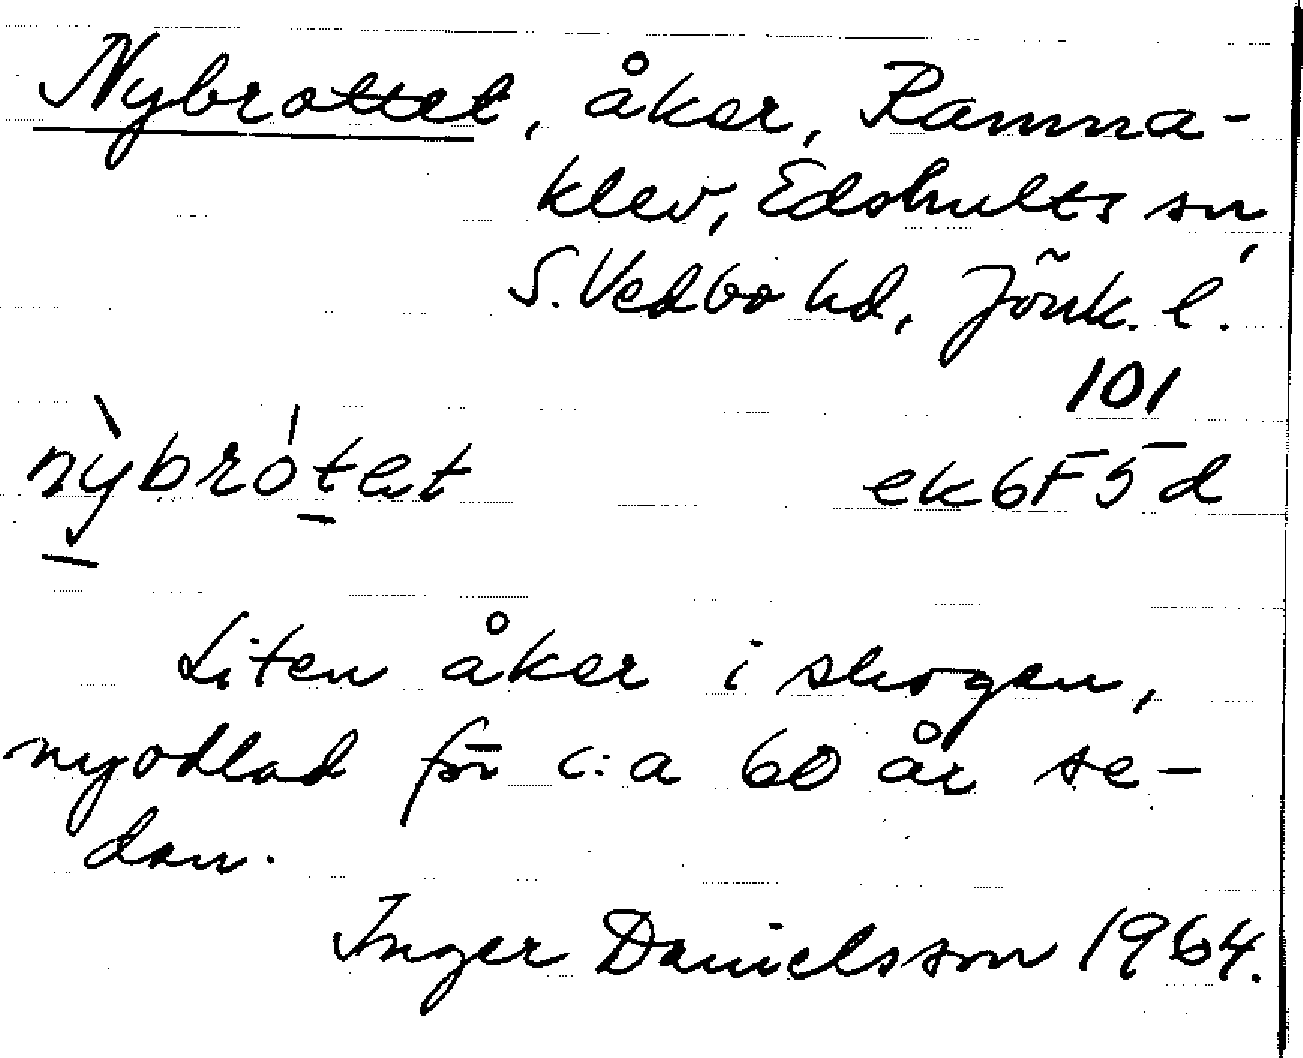 Nybrottet, åker, Ramna-
klev, Edshults sn,
S. Vedbo hd, Jönk. l.
101
nỳbrótet ek6F5d
Liten åker i skogen,
nyodlad för c:a 60 år se-
dan.
Inger Danielsson 1964.